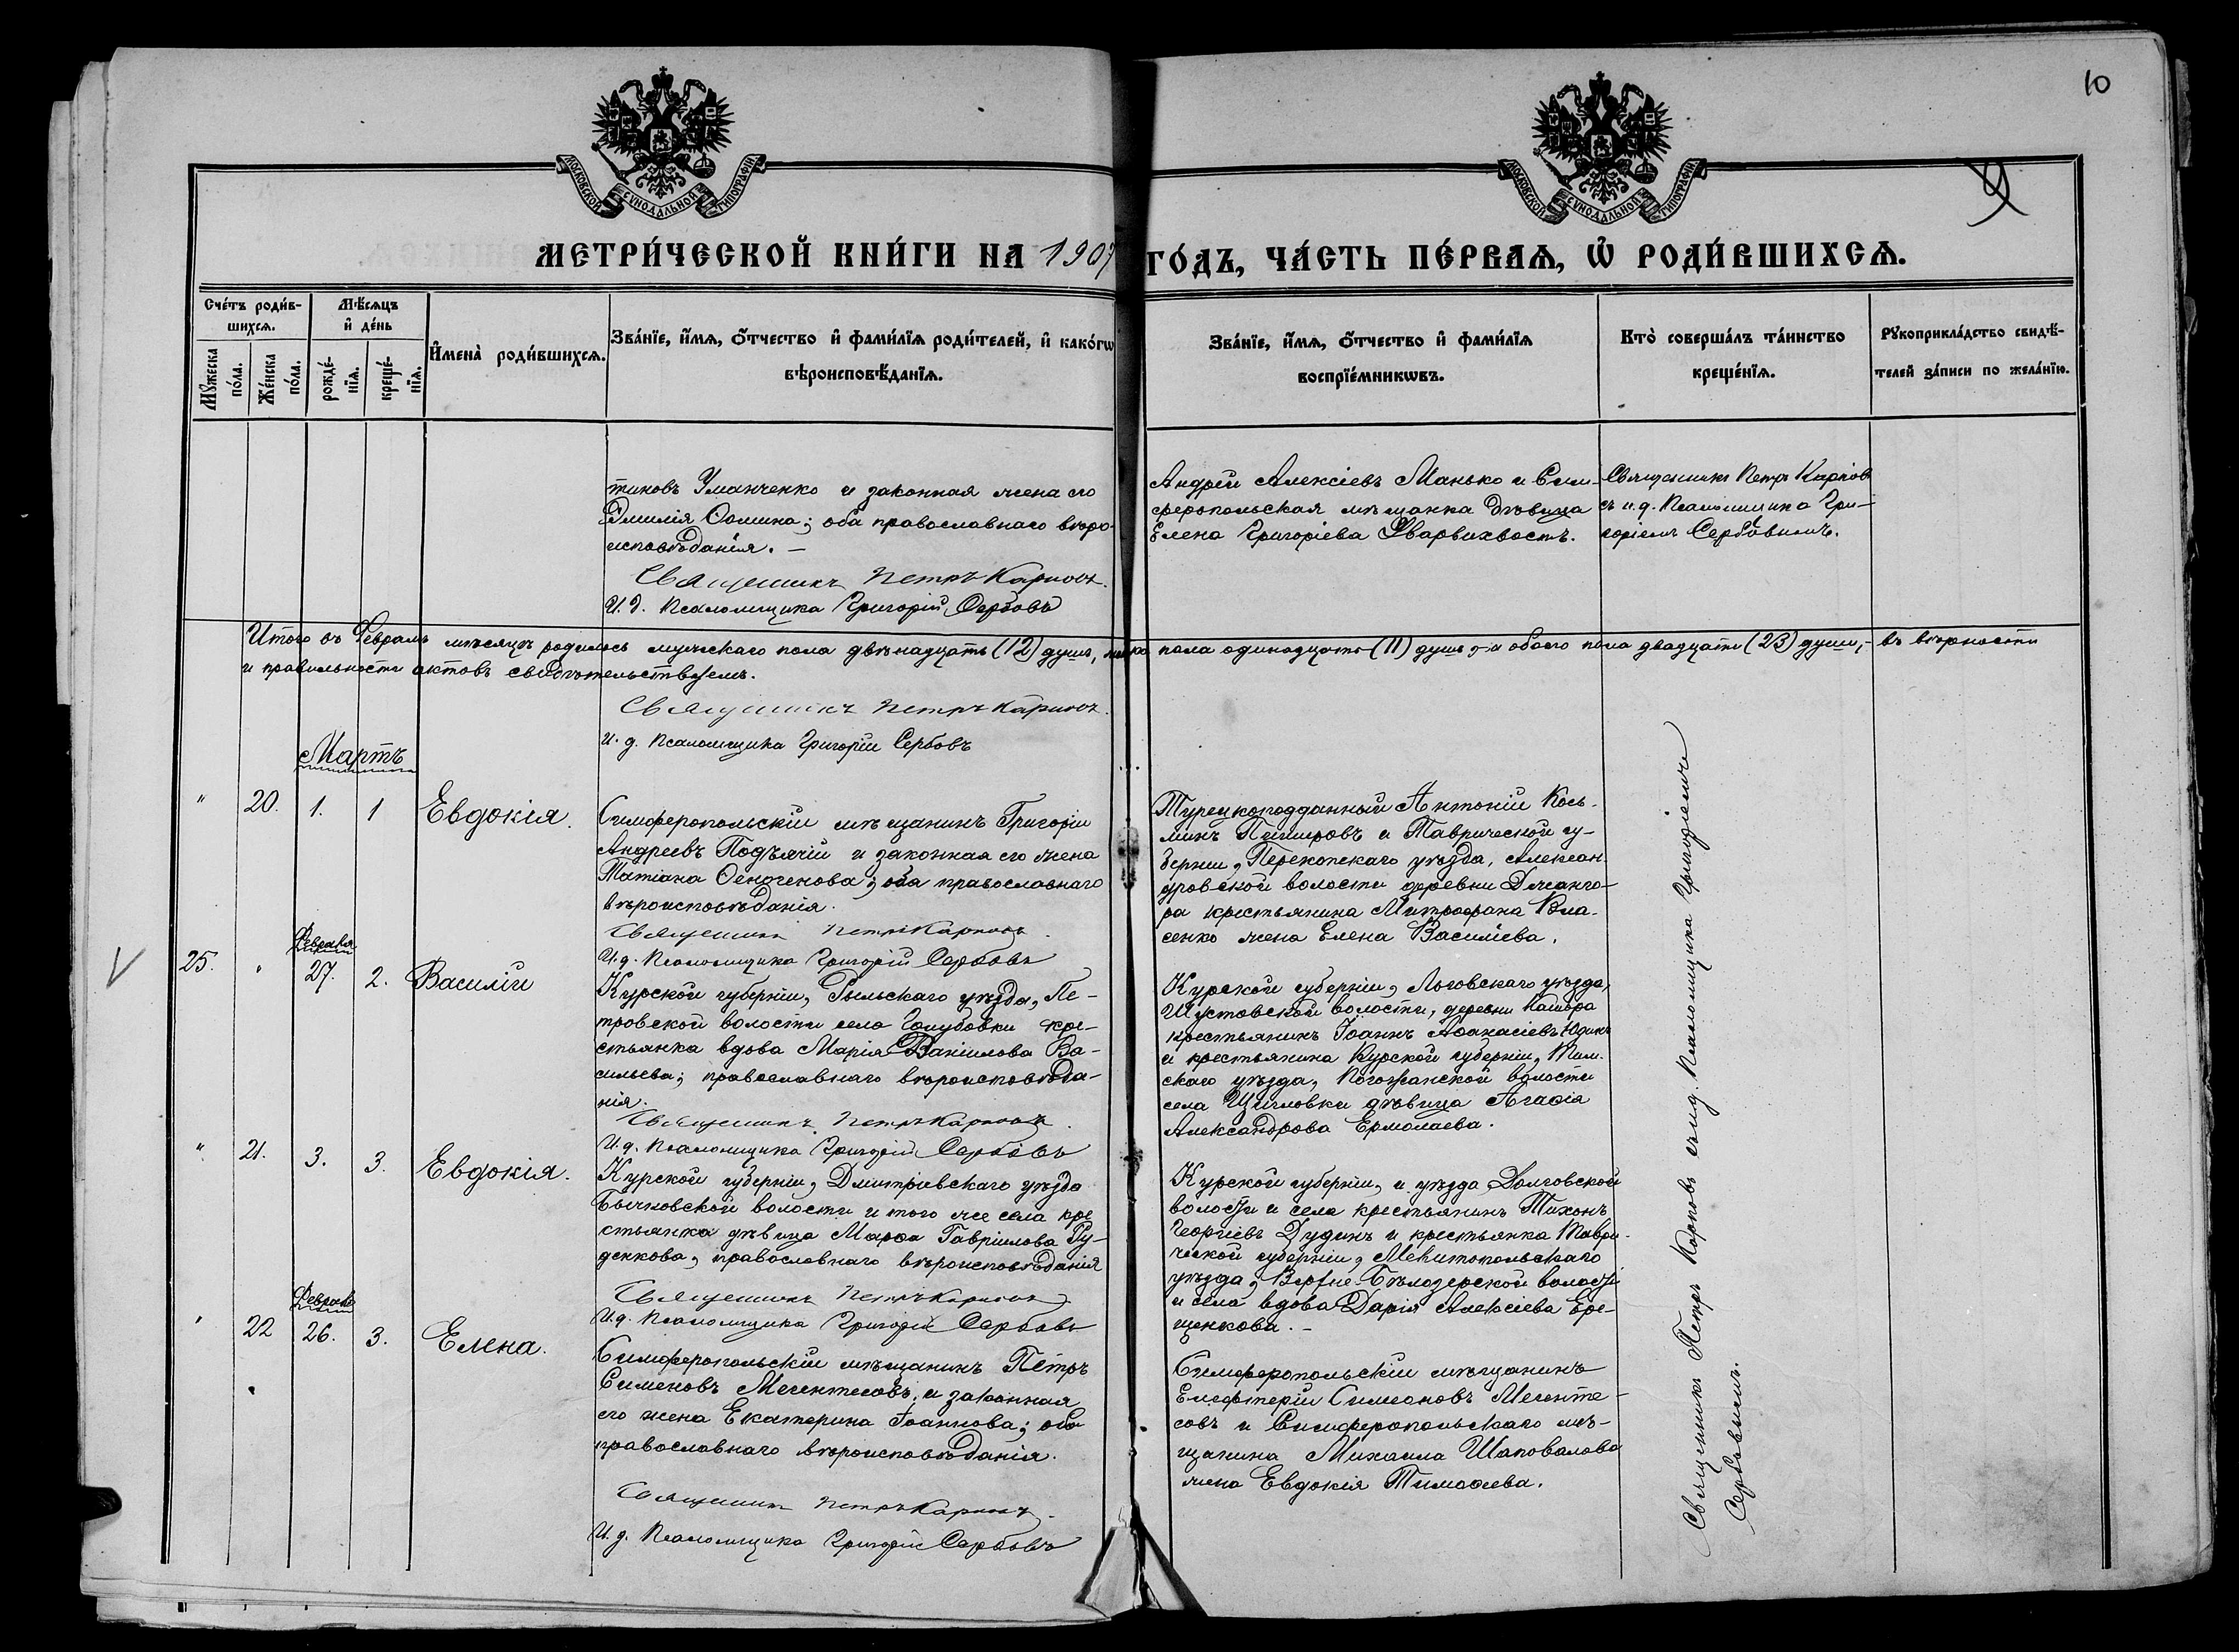 10
9
МОСКОВСКОЙ СѴНОДАЛЬНОЙ ТИПОГРАФІИ
МОСКОВСКОЙ СѴНОДАЛЬНОЙ ТИПОГРАФІИ
МЕТРИ́ЧЕСКОЙ КНИ́ГИ НА 1907 ГО́ДЪ, ЧА́СТЬ ПЕ́РВАѦ, Ѡ҆ РОДИ́ВШИХСѦ.
Сче́тъ роди́в-
шихсѧ.
Мꙋ́жеска
по́ла.
Же́нска
по́ла.
Мѣ́сѧцъ
и҆ де́нь
рожде́-
нїѧ.
креще́-
нїѧ.
И҆мена̀ роди́вшихсѧ.
Зва́нїе, и҆́мѧ, ѻ҆́тчество и҆ фами́лїѧ роди́телей, и҆ како́гѡ
вѣроисповѣ́данїѧ.
Зва́нїе, и҆́мѧ, ѻ҆́тчество и҆ фами́лїѧ
воспрїе́мникѡвъ.
Кто̀ соверша́лъ та́инство
креще́нїѧ.
Рꙋкоприкла́дство свидѣ́-
телей за́писи по жела́нїю.
тиновъ Уманченко и законная жена его
Эмилія Ѳомина; оба православнаго вѣро-
исповѣданія. –
Священникъ Петръ Карповъ.
И. д. Псаломщика Григорій Сербовъ
Андрей Алексіевъ Манько и Сим-
феропольская мѣщанка дѣвица
Елена Григоріева Хварвихвостъ.
Священникъ Петръ Карповъ
съ и. д. Псаломщика Гри-
горіемъ Сербовымъ.
Итого въ Февралѣ мѣсяцѣ родилось мужскаго пола двѣнадцать (12) душъ, пола одинадцать (11) душъ, а обоего пола двадцать (23) души, – въ вѣрности
и правильности актовъ свидѣтельствуемъ.
Священникъ Петръ Карповъ.
И. д. Псаломщика Григорій Сербовъ
Мартъ
" 20. 1. 1 Евдокія.
Симферопольскій мѣщанинъ Григорій
Андреевъ Подъячій и законная его жена
Татіана Ѳеногенова; оба православнаго
вѣроисповѣданія.
Священникъ Петръ Карповъ.
И. д. Псаломщика Григорій Сербовъ
Турецкоподданный Антоній Кось-
минъ и Таврической гу-
берніи, Перекопскаго уѣзда, Алексан-
дровской волости деревни Джанго-
ра крестьянина Митрофана Вла-
сенко жена Елена Василіева.
25. " Февраля 27. 2. Василій
Курской губерніи, Рыльскаго уѣзда, Пе-
тровской волости села Голубовки кре-
стьянка вдова Марія Даніилова Ва-
сильева; православнаго вѣроисповѣда-
нія.
Священникъ Петръ Карповъ.
И. д. Псаломщика Григорій Сербовъ
Курской губерніи, Льговскаго уѣзда,
Шустовской волости, деревни
крестьянинъ Іоаннъ Аѳанасіевъ Юдинъ
и крестьянина Курской губерніи, Тим-
скаго уѣзда, Погожанской волости
села дѣвица Агаѳія
Александрова Ермолаева.
" 21. 3. 3. Евдокія.
Курской губерніи, Дмитріевскаго уѣзда
Бычковской волости и того же села кре
стьянка дѣвица Марѳа Гавріилова Ру-
денкова, православнаго вѣроисповѣданія
Священникъ Петръ Карповъ
И. д. Псаломщика Григорій Сербовъ
Курской губерніи, и уѣзда Долговской
волости и села крестьянинъ Тихонъ
Георгіевъ Дудинъ и крестьянка Таври-
ческой губерніи, Мелитопольскаго
уѣзда, Верхне-Бѣлозерской волости
и села вдова Дарія Алексіева Ере-
щенкова. –
" 22 Февраля 26. 3. Елена.
Симферопольскій мѣщанинъ Петръ
Сименовъ Мегентесовъ, и законная
его жена Екатерина Іоаннова; оба
православнаго вѣроисповѣданія.
Священникъ Петръ Карповъ.
И. д. Псаломщика Григорій Сербовъ
Симферопольскій мѣщанинъ
Елефтерій Симеоновъ Мегенте-
совъ и Симферопольскаго мѣ-
щанина Михаила Шаповалова
жена Евдокія Тимоѳеева.
Священникъ Петръ Карповъ съ и. д. Псаломщика Григоріемъ
Сербовымъ.